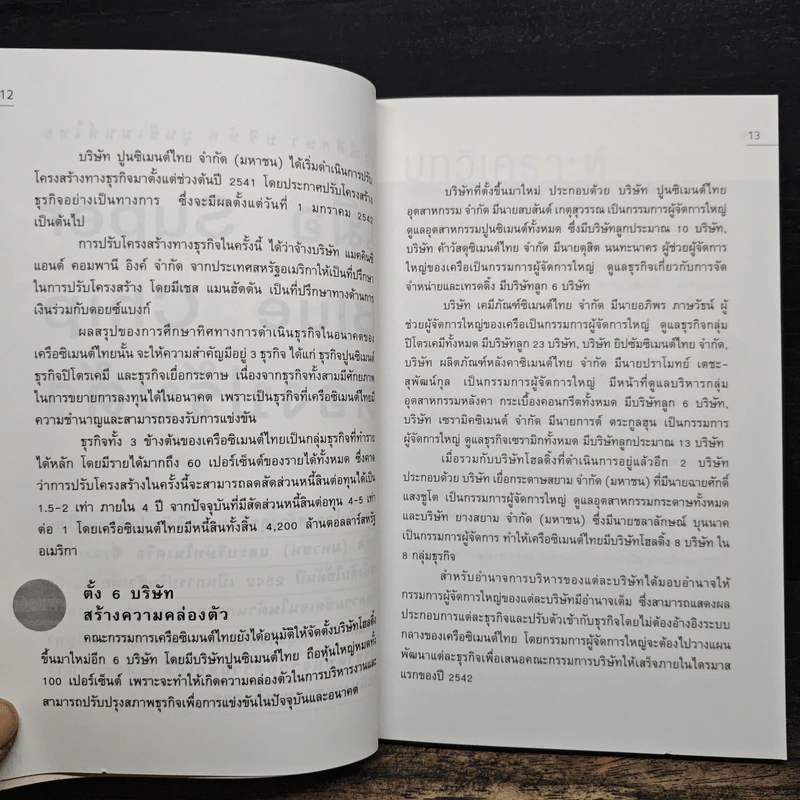 12
บริษัท ปูนซิเมนต์ไทย จำกัด (มหาชน) ได้เริ่มดำเนินการปรับ
โครงสร้างทางธุรกิจมาตั้งแต่ช่วงต้นปี 2541 โดยประกาศปรับโครงสร้าง
ธุรกิจอย่างเป็นทางการ ซึ่งจะมีผลตั้งแต่วันที่ 1 มกราคม 2542
เป็นต้นไป
การปรับโครงสร้างทางธุรกิจในครั้งนี้ ได้ว่าจ้างบริษัท แมคคินซี
แอนด์ คอมพานี อิงค์ จำกัด จากประเทศสหรัฐอเมริกาให้เป็นที่ปรึกษา
ในการปรับโครงสร้าง โดยมีเชส แมนฮัตตัน เป็นที่ปรึกษาทางด้านการ
เงินร่วมกับดอยซ์แบงก์
ผลสรุปของการศึกษาทิศทางการดำเนินธุรกิจในอนาคตของ
เครือซิเมนต์ไทยนั้น จะให้ความสำคัญมีอยู่ 3 ธุรกิจ ได้แก่ ธุรกิจปูนซิเมนต์
ธุรกิจปิโตรเคมี และธุรกิจเยื่อกระดาษ เนื่องจากธุรกิจทั้งสามมีศักยภาพ
ในการขยายการลงทุนได้ในอนาคต เพราะเป็นธุรกิจที่เครือซิเมนต์ไทยมี
ความชำนาญและสามารถรองรับการแข่งขัน
ธุรกิจทั้ง 3 ข้างต้นของเครือซิเมนต์ไทยเป็นกลุ่มธุรกิจที่ทำราย
ได้หลัก โดยมีรายได้มากถึง 60 เปอร์เซ็นต์ของรายได้ทั้งหมด ซึ่งคาด
ว่าการปรับโครงสร้างในครั้งนี้จะสามารถลดสัดส่วนหนี้สินต่อทุนได้เป็น
1.5-2 เท่า ภายใน 4 ปี จากปัจจุบันที่มีสัดส่วนหนี้สินต่อทุน 4-5 เท่า
ต่อ 1 โดยเครือซิเมนต์ไทยมีหนี้สินทั้งสิ้น 4,200 ล้านดอลลาร์สหรัฐ
อเมริกา
ตั้ง 6 บริษัท
สร้างความคล่องตัว
คณะกรรมการเครือซิเมนต์ไทยยังได้อนุมัติให้จัดตั้งบริษัทโฮลดิ้ง
ขึ้นมาใหม่อีก 6 บริษัท โดยมีบริษัทปูนซิเมนต์ไทย ถือหุ้นใหญ่หมดทั้ง
100 เปอร์เซ็นต์ เพราะจะทำให้เกิดความคล่องตัวในการบริหารงานและ
สามารถปรับปรุงสภาพธุรกิจเพื่อการแข่งขันในปัจจุบันและอนาคต
13
บริษัทที่ตั้งขึ้นมาใหม่ ประกอบด้วย บริษัท ปูนซิเมนต์ไทย
อุตสาหกรรม จำกัด มีนายสบสันต์ เกตุสุวรรณ เป็นกรรมการผู้จัดการใหญ่
ดูแลอุตสาหกรรมปูนซิเมนต์ทั้งหมด ซึ่งมีบริษัทลูกประมาณ 10 บริษัท,
บริษัท ค้าวัสดุซิเมนต์ไทย จำกัด มีนายดุสิต นนทะนาคร ผู้ช่วยผู้จัดการ
ใหญ่ของเครือเป็นกรรมการผู้จัดการใหญ่ ดูแลธุรกิจเกี่ยวกับการจัด
จำหน่ายและเทรดดิ้ง มีบริษัทลูก 6 บริษัท
บริษัท เคมีภัณฑ์ซิเมนต์ไทย จำกัด มีนายอภิพร ภาษวัธน์ ผู้
ช่วยผู้จัดการใหญ่ของเครือเป็นกรรมการผู้จัดการใหญ่ ดูแลธุรกิจกลุ่ม
ปิโตรเคมีทั้งหมด มีบริษัทลูก 23 บริษัท, บริษัท ยิปซัมซิเมนต์ไทย จำกัด,
บริษัท ผลิตภัณฑ์หลังคาซิเมนต์ไทย จำกัด มีนายปราโมทย์ เตชะ-
สุพัฒน์กุล เป็นกรรมการผู้จัดการใหญ่ มีหน้าที่ดูแลบริหารกลุ่ม
อุตสาหกรรมหลังคา กระเบื้องคอนกรีตทั้งหมด มีบริษัทลูก 6 บริษัท,
บริษัท เซรามิคซิเมนต์ จำกัด มีนายการต์ ตระกูลฮุน เป็นกรรมการ
ผู้จัดการใหญ่ ดูแลธุรกิจเซรามิกทั้งหมด มีบริษัทลูกประมาณ 13 บริษัท
เมื่อรวมกับบริษัทโฮลดิ้งที่ดำเนินการอยู่แล้วอีก 2 บริษัท
ประกอบด้วย บริษัท เยื่อกระดาษสยาม จำกัด (มหาชน) ที่มีนายฉายศักดิ์
แสงชูโต เป็นกรรมการผู้จัดการใหญ่ ดูแลอุตสาหกรรมกระดาษทั้งหมด
และบริษัท ยางสยาม จำกัด (มหาชน) ซึ่งมีนายชลาลักษณ์ บุนนาค
เป็นกรรมการผู้จัดการ ทำให้เครือซิเมนต์ไทยมีบริษัทโฮลดิ้ง 8 บริษัท ใน
8 กลุ่มธุรกิจ
สำหรับอำนาจการบริหารของแต่ละบริษัทได้มอบอำนาจให้
กรรมการผู้จัดการใหญ่ของแต่ละบริษัทมีอำนาจเต็ม ซึ่งสามารถแสดงผล
ประกอบการแต่ละธุรกิจและปรับตัวเข้ากับธุรกิจโดยไม่ต้องอ้างอิงระบบ
กลางของเครือซิเมนต์ไทย โดยกรรมการผู้จัดการใหญ่จะต้องไปวางแผน
พัฒนาแต่ละธุรกิจเพื่อเสนอคณะกรรมการบริษัทให้เสร็จภายในไตรมาส
แรกของปี 2542